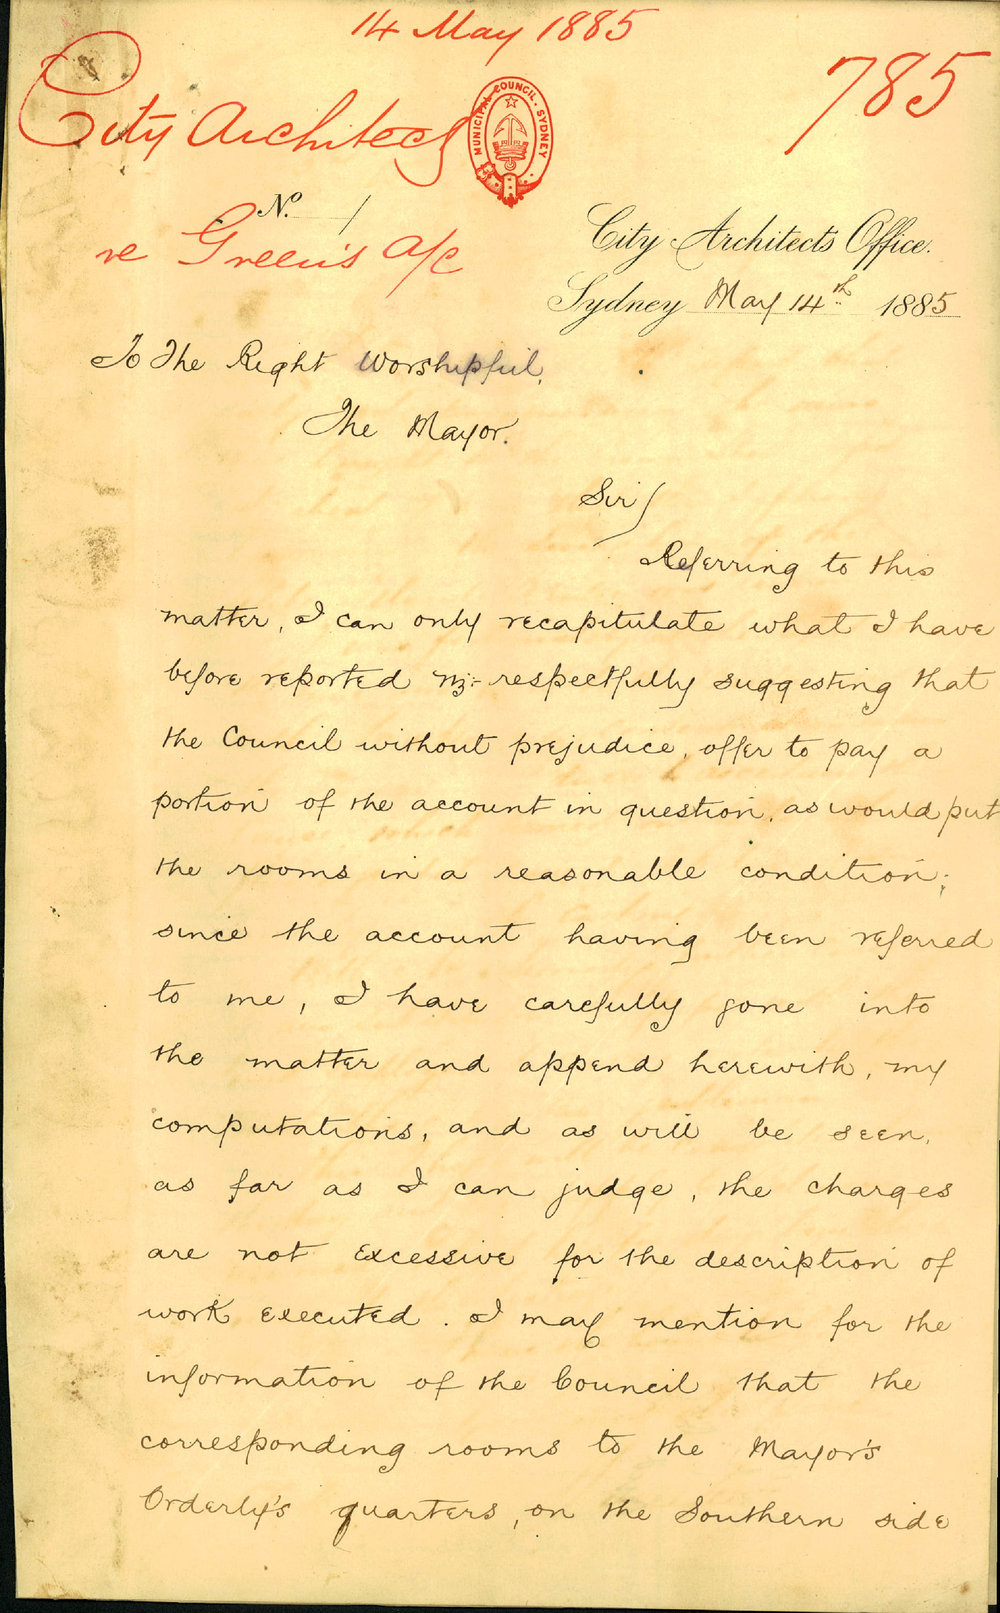 14 May 1885
785
City Architect
MUNICIPAL COUNCIL. SYDNEY
No. 1
re Green's a/c
City Architects Office.
Sydney May 14th 1885
To The Right Worshipful,
The Mayor.
Sir/
Referring to this
matter, I can only recapitulate what I have
before reported viz:- respectfully suggesting that
the Council without prejudice, offer to pay a
portion of the account in question, as would put
the rooms in a reasonable condition;
since the account having been referred
to me, I have carefully gone into
the matter and append herewith, my
computations, and as will be seen,
as far as I can judge, the charges
are not excessive for the description of
work executed. I may mention for the
information of the Council that the
corresponding rooms to the Mayor's
Orderly's quarters, on the Southern side